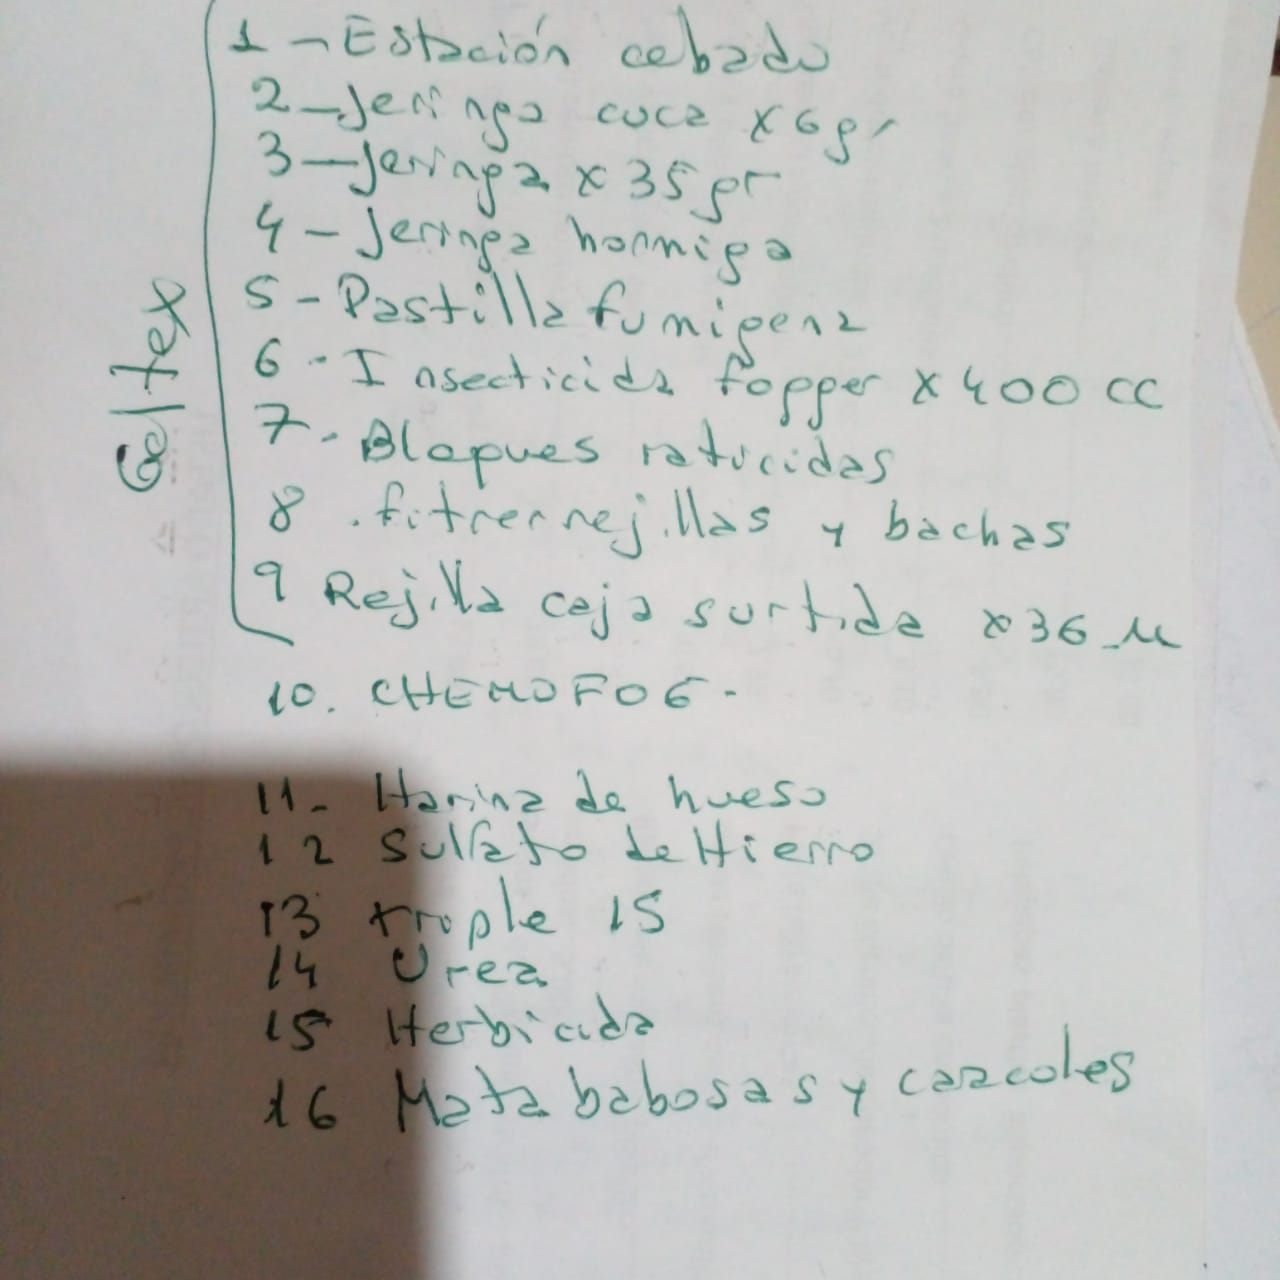 Geltex
1 - Estación cebado
2 - Jeringa cuca x 6 gr
3 - Jeringa x 35 gr
4 - Jeringa hormiga
5 - Pastilla fumigena
6 - Insecticida fogger x 400 cc
7 - Bloques raticidas
8 . fitrer rejillas y bachas
9 Rejilla caja surtida x 36 u
10. CHEMOFOG -
11 - Harina de hueso
12 Sulfato de Hierro
13 triple 15
14 Urea
15 Herbicida
16 Mata babosas y caracoles